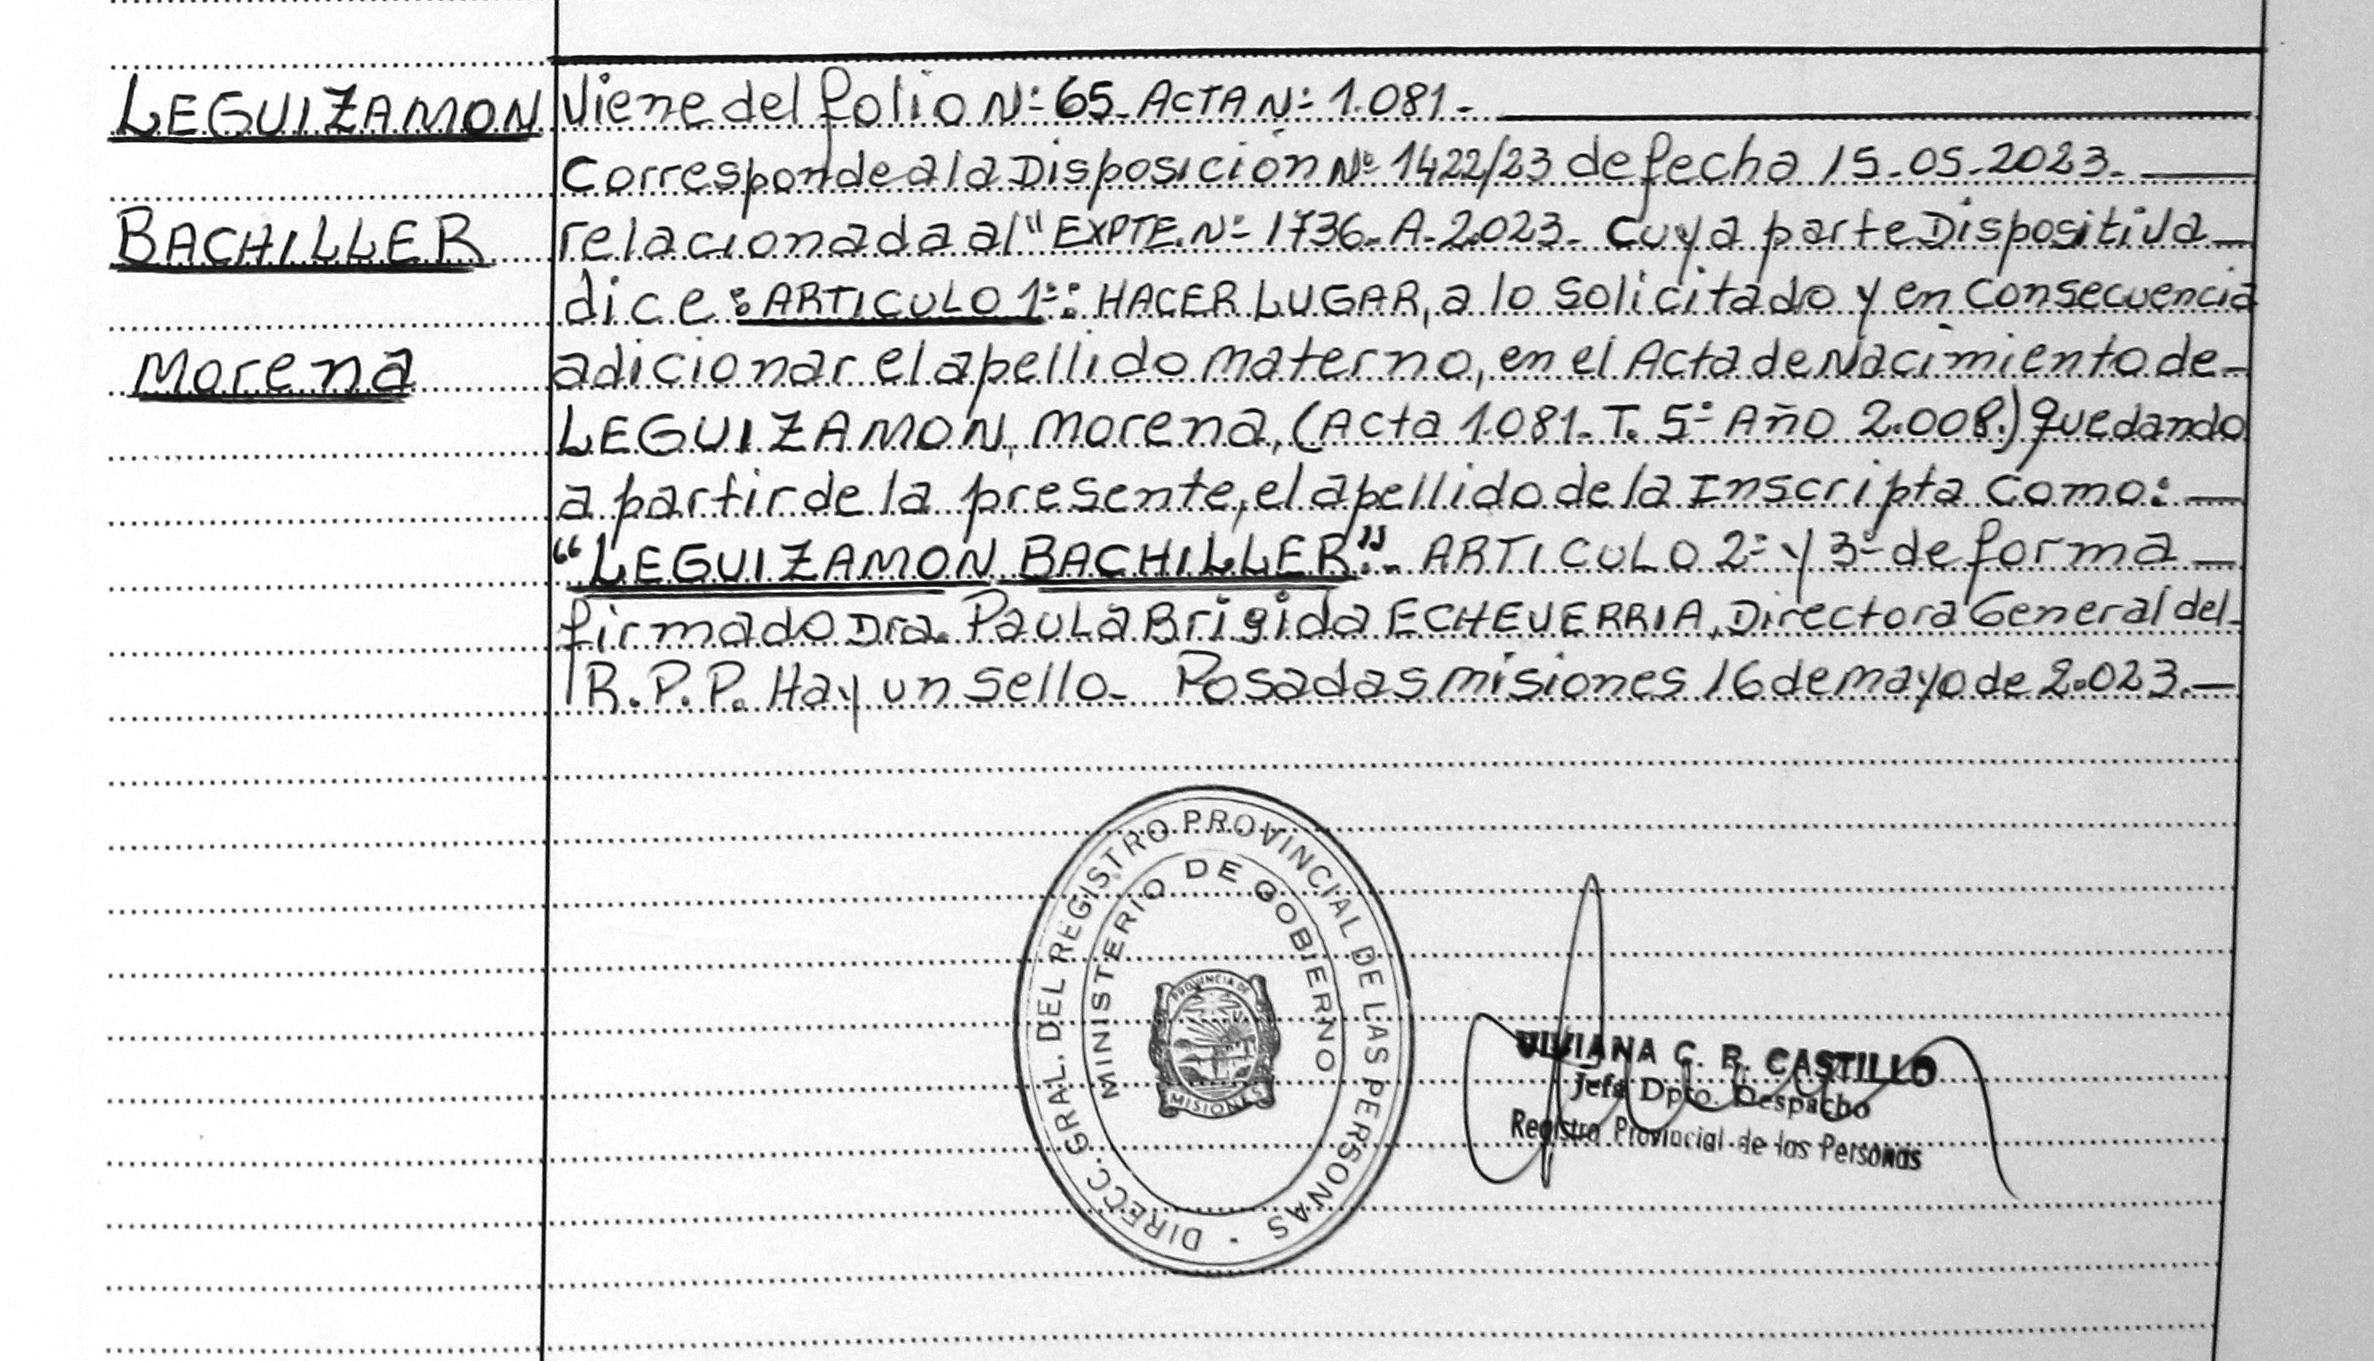 LEGUIZAMON
BACHILLER
Morena
Viene del folio Nº 65. ACTA Nº 1.081.-
Corresponde a la Disposición Nº 1422/23 de fecha 15.05.2023.
relacionada al "EXPTE. Nº 1736-A-2.023- Cuya parte Dispositiva
dice: ARTICULO 1º: HACER LUGAR, a lo Solicitado y en Consecuencia
adicionar el apellido Materno, en el Acta de Nacimiento de
LEGUIZAMON, Morena, (Acta 1.081. T. 5º Año 2.008.) quedando
a partir de la presente, el apellido de la Inscripta Como:
"LEGUIZAMON BACHILLER".- ARTICULO 2º y 3º de forma
firmado Dra. Paula Brigida ECHEVERRIA, Directora General del
R.P.P. Hay un Sello. Posadas Misiones 16 de mayo de 2.023.
DIRECC. GRAL. DEL REGISTRO PROVINCIAL DE LAS PERSONAS
MINISTERIO DE GOBIERNO
PROVINCIA DE
MISIONES
VIVIANA C. R. CASTILLO
Jefa Dpto. Despacho
Registro Provincial de las Personas